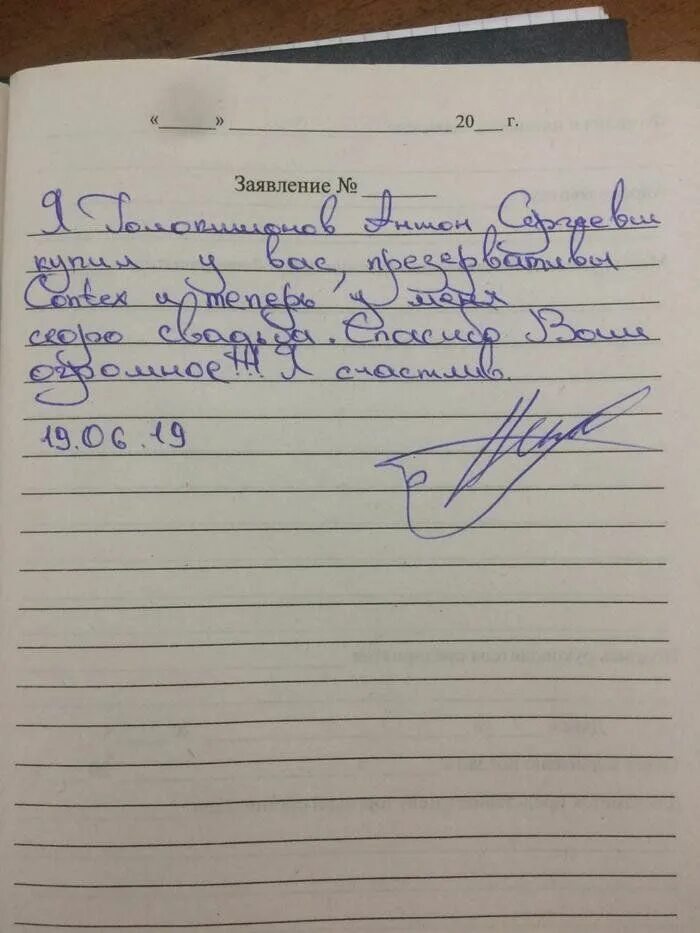 «____» ____________________ 20___ г.
Заявление № ______
Я Антон Сергеевич
купил у вас, презервативы
Contex и теперь у меня
скоро свадьба. Спасибо Вам
огромное!!! Я счастлив.
19.06.19